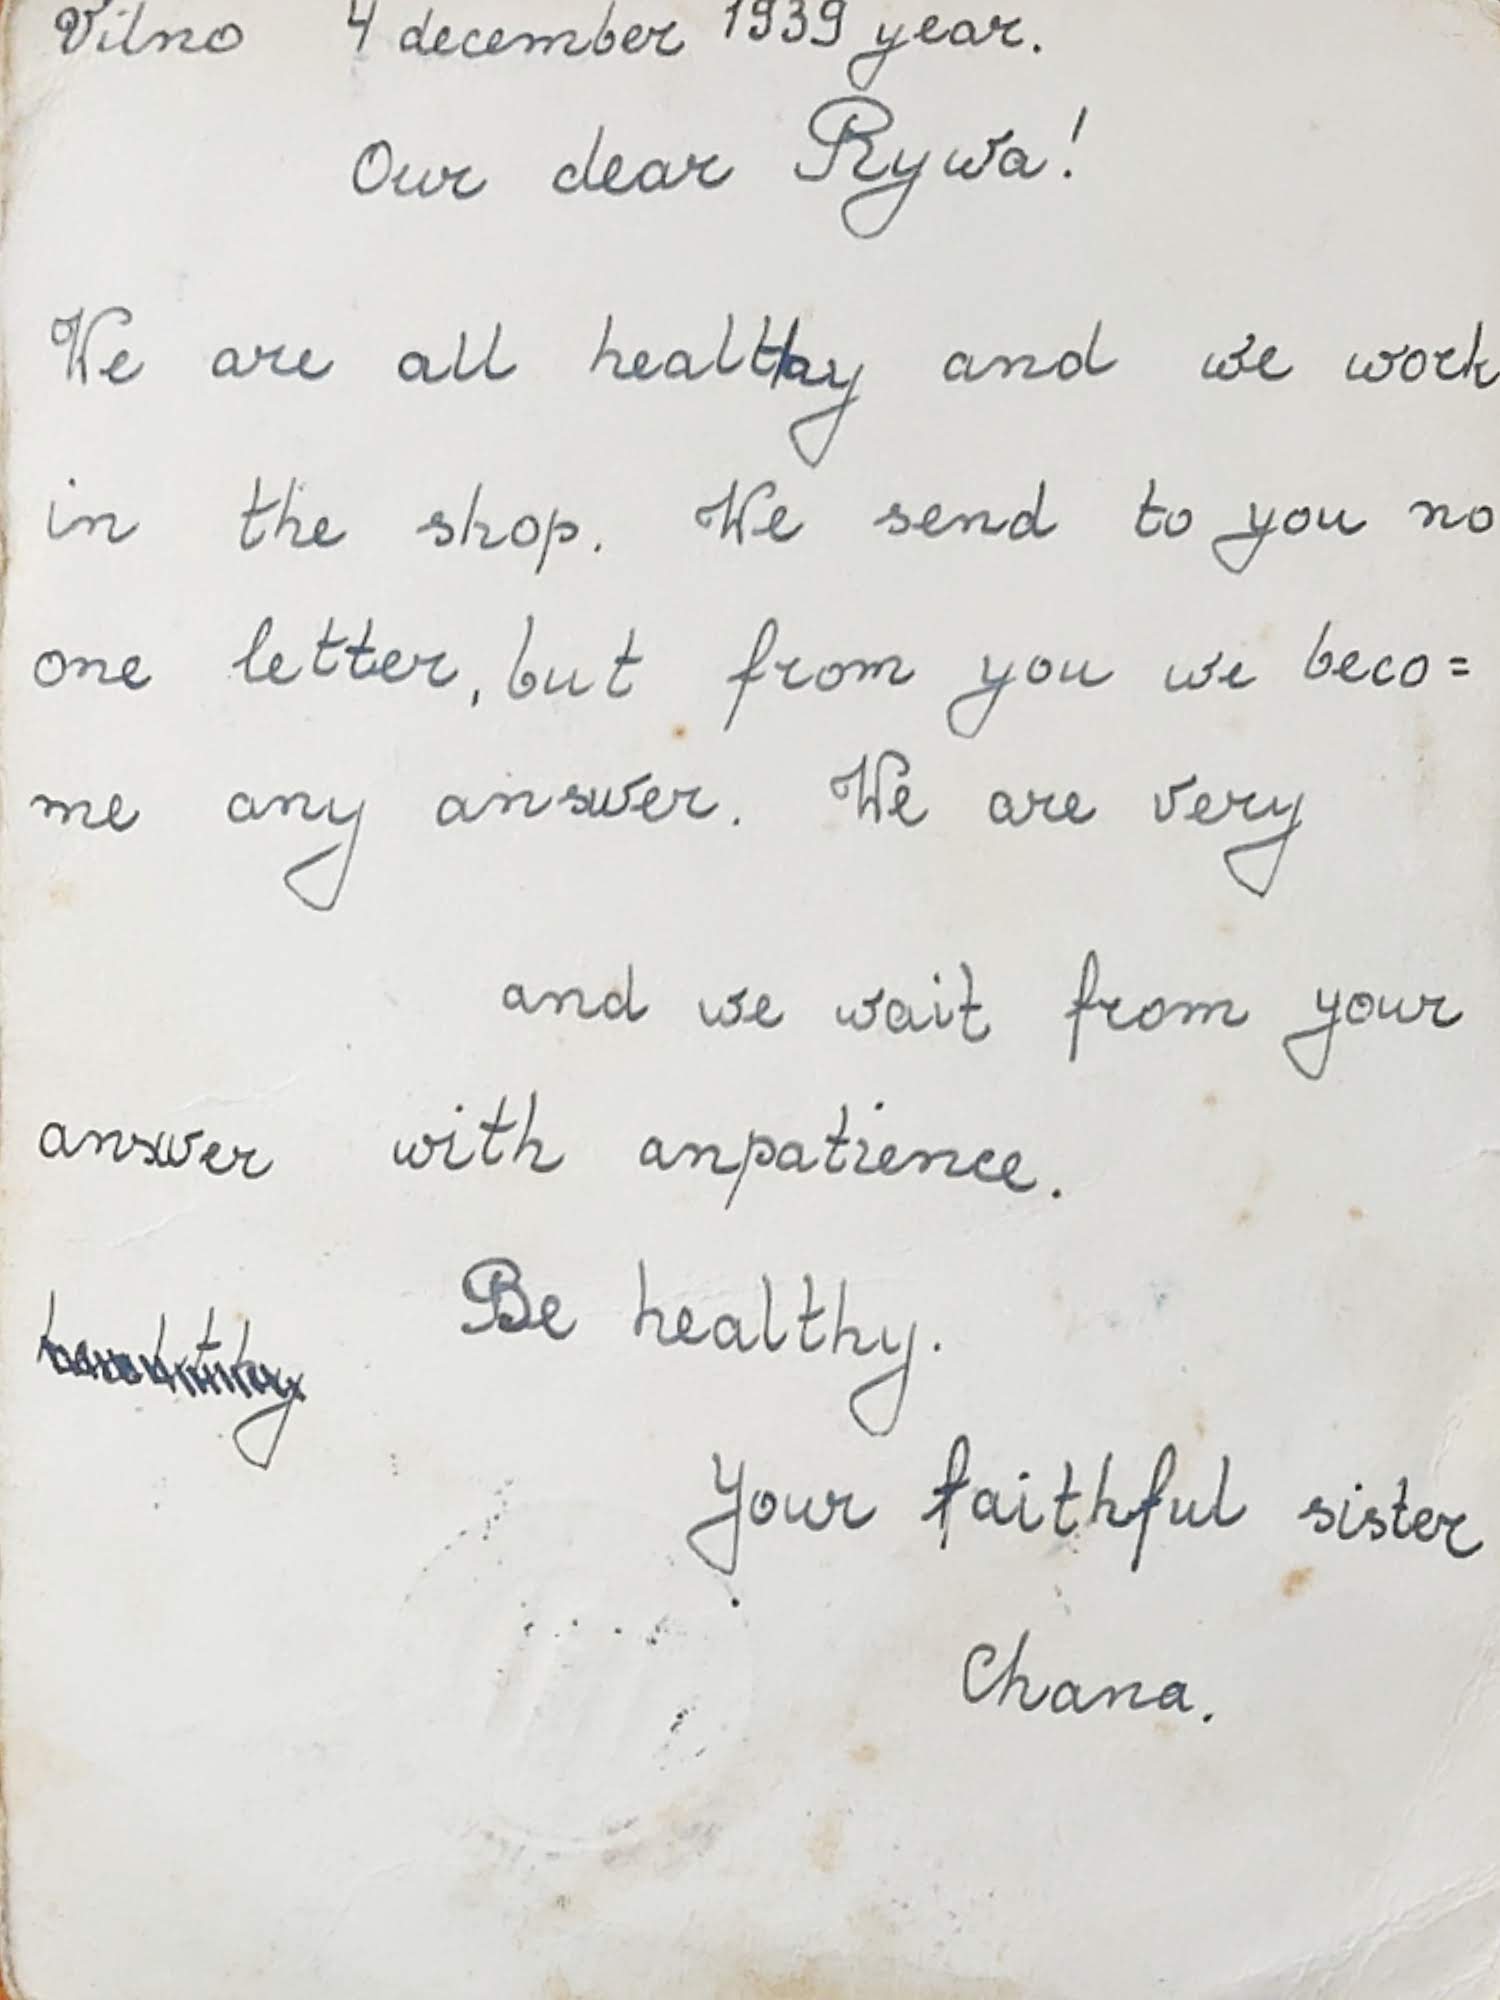 Vilno 4 december 1939 year.
Our dear Rywa!
We are all healthy and we work
in the shop. We send to you no
one letter, but from you we beco=
me any answer. We are very
and we wait from your
answer with anpatience.
Be healthy.
Your faithful sister
Chana.